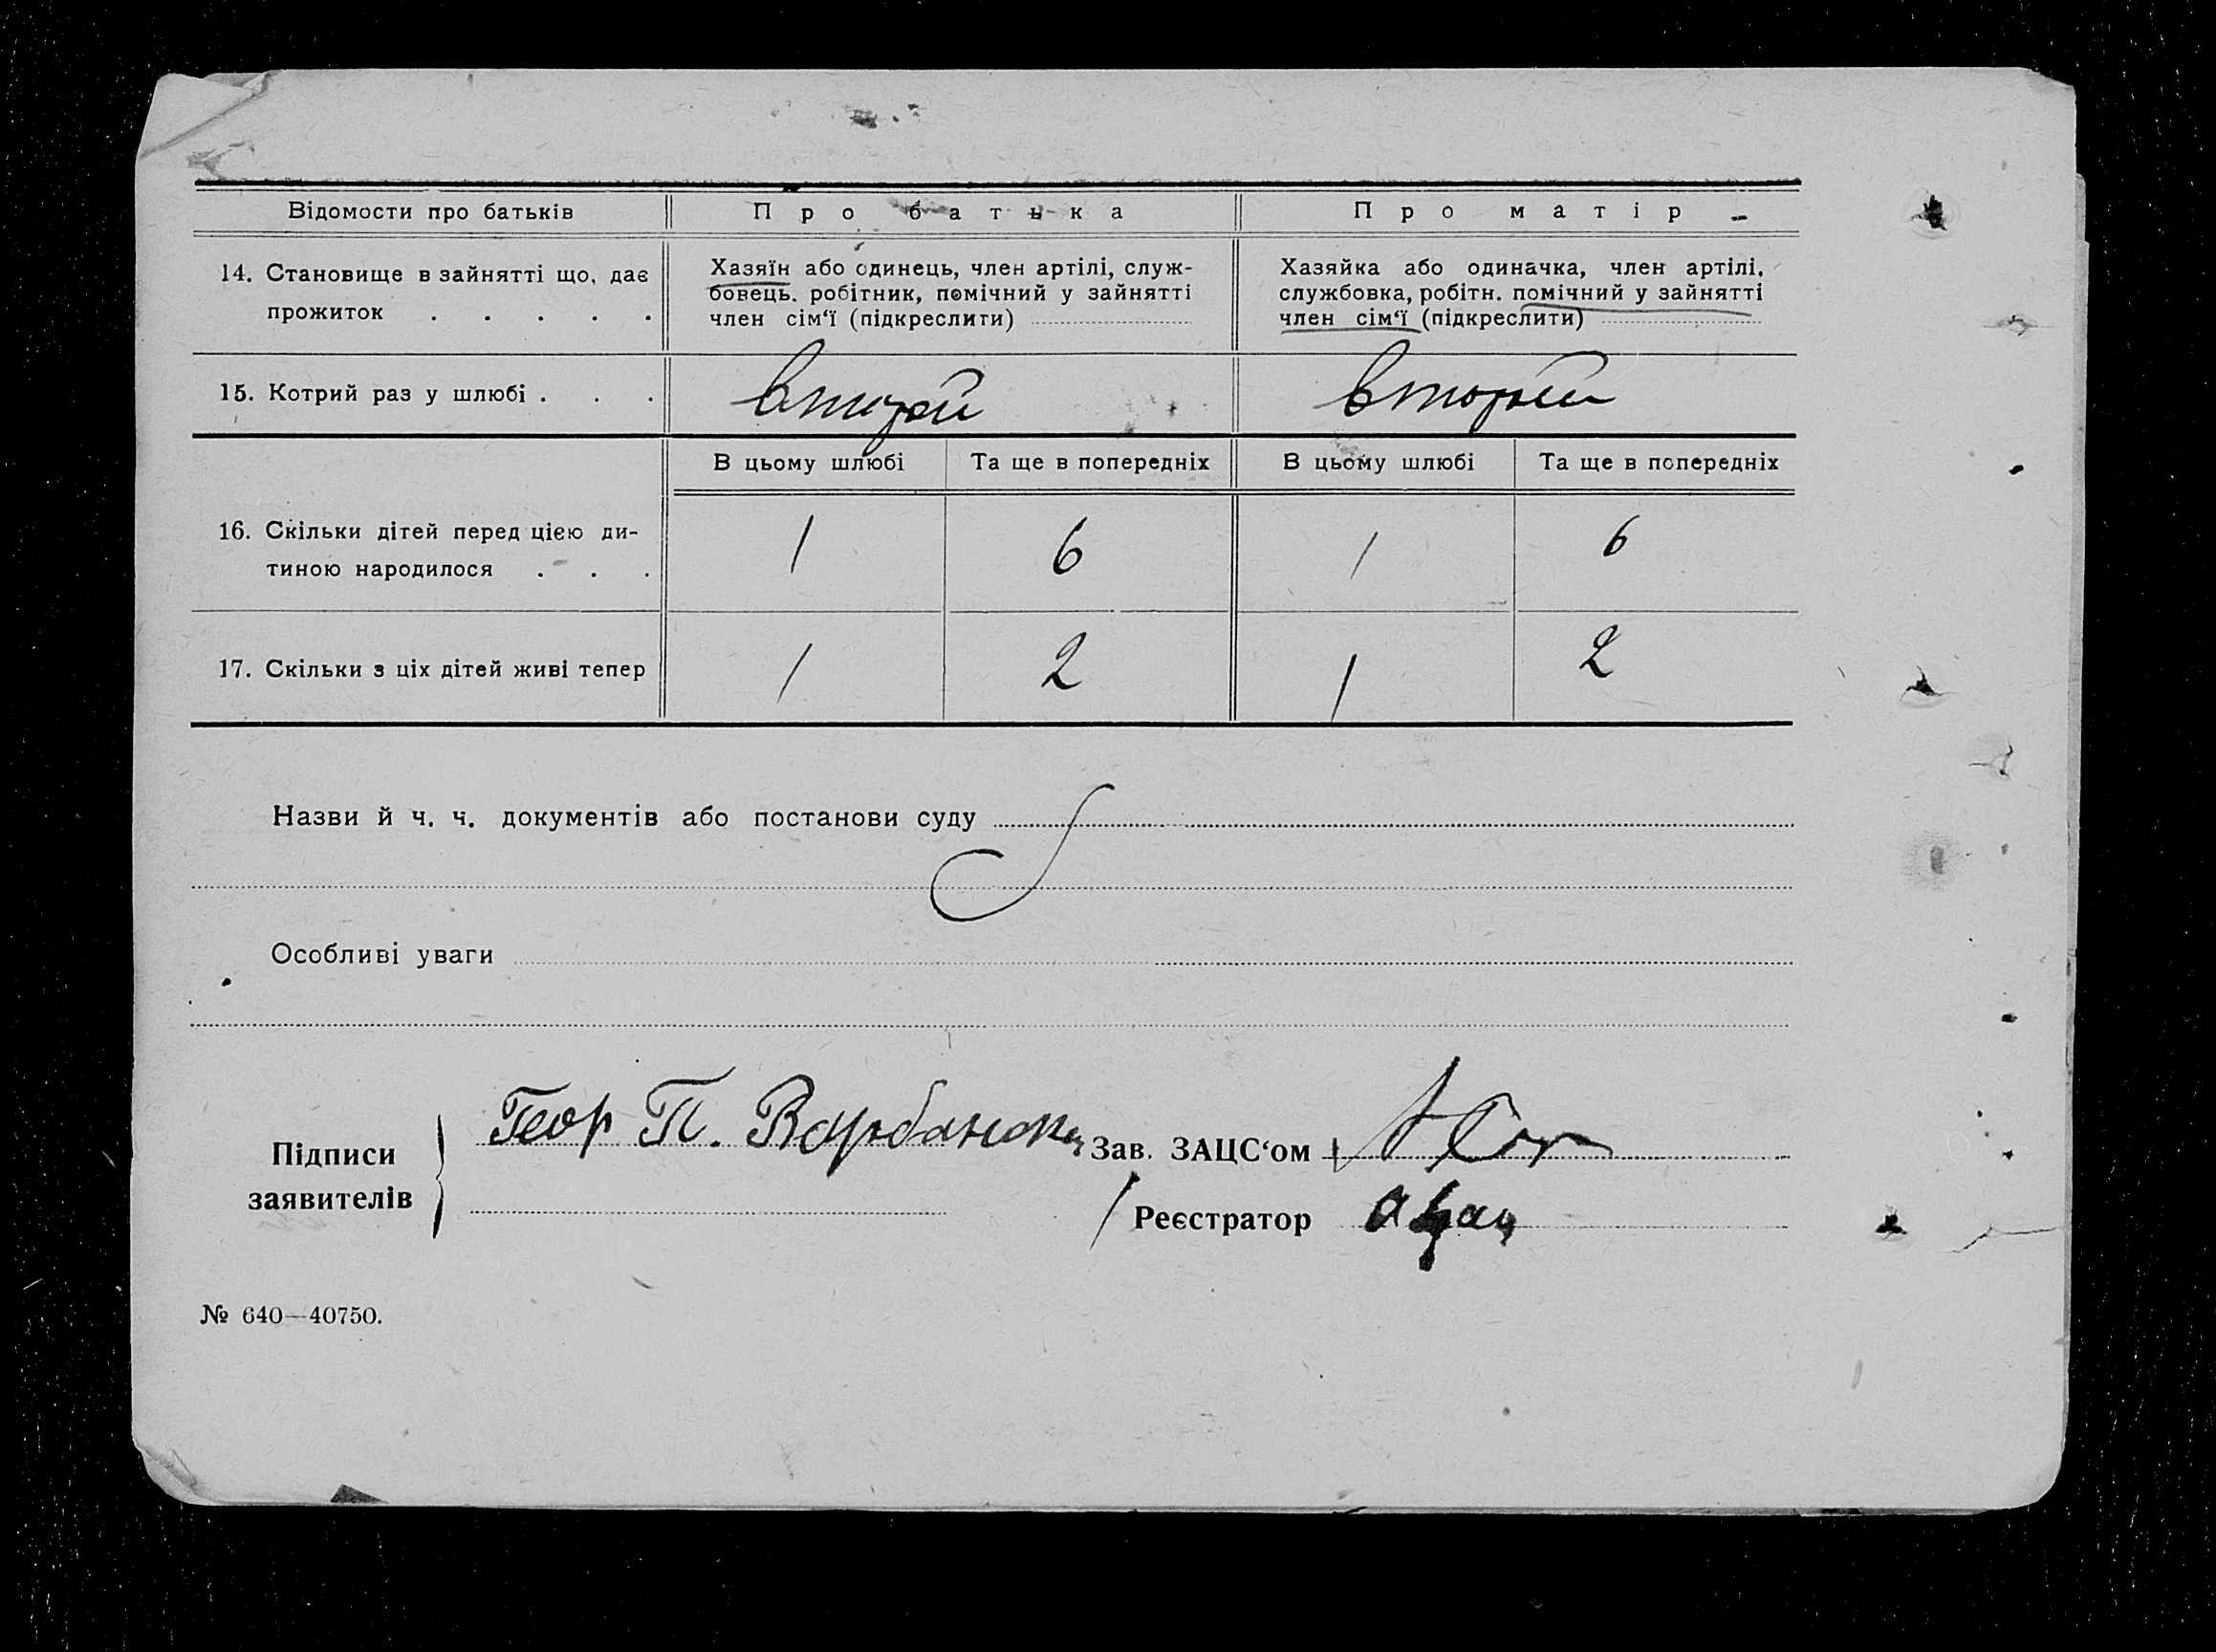 Відомости про батьків Про батька Про матір
14. Становище в зайнятті що, дає прожиток . . . . .
Хазяїн або одинець, член артілі, служ-
бовець. робітник, помічний у зайнятті
член сім‘ї (підкреслити)
Хазяйка або одиначка, член артілі,
службовка, робітн. помічний у зайнятті
член сім‘ї (підкреслити)
15. Котрий раз у шлюбі . . . второй второй
В цьому шлюбі Та ще в попередніх В цьому шлюбі Та ще в попередніх
16. Скільки дітей перед цією ди-
тиною народилося . . . 1 6 1 6
17. Скільки з ціх дітей живі тепер 1 2 1 2
Назви й ч. ч. документів або постанови суду
Особливі уваги
Підписи
заявителів
Геор П. Варбанск
Зав. ЗАЦС‘ом
Реєстратор
№ 640—40750.